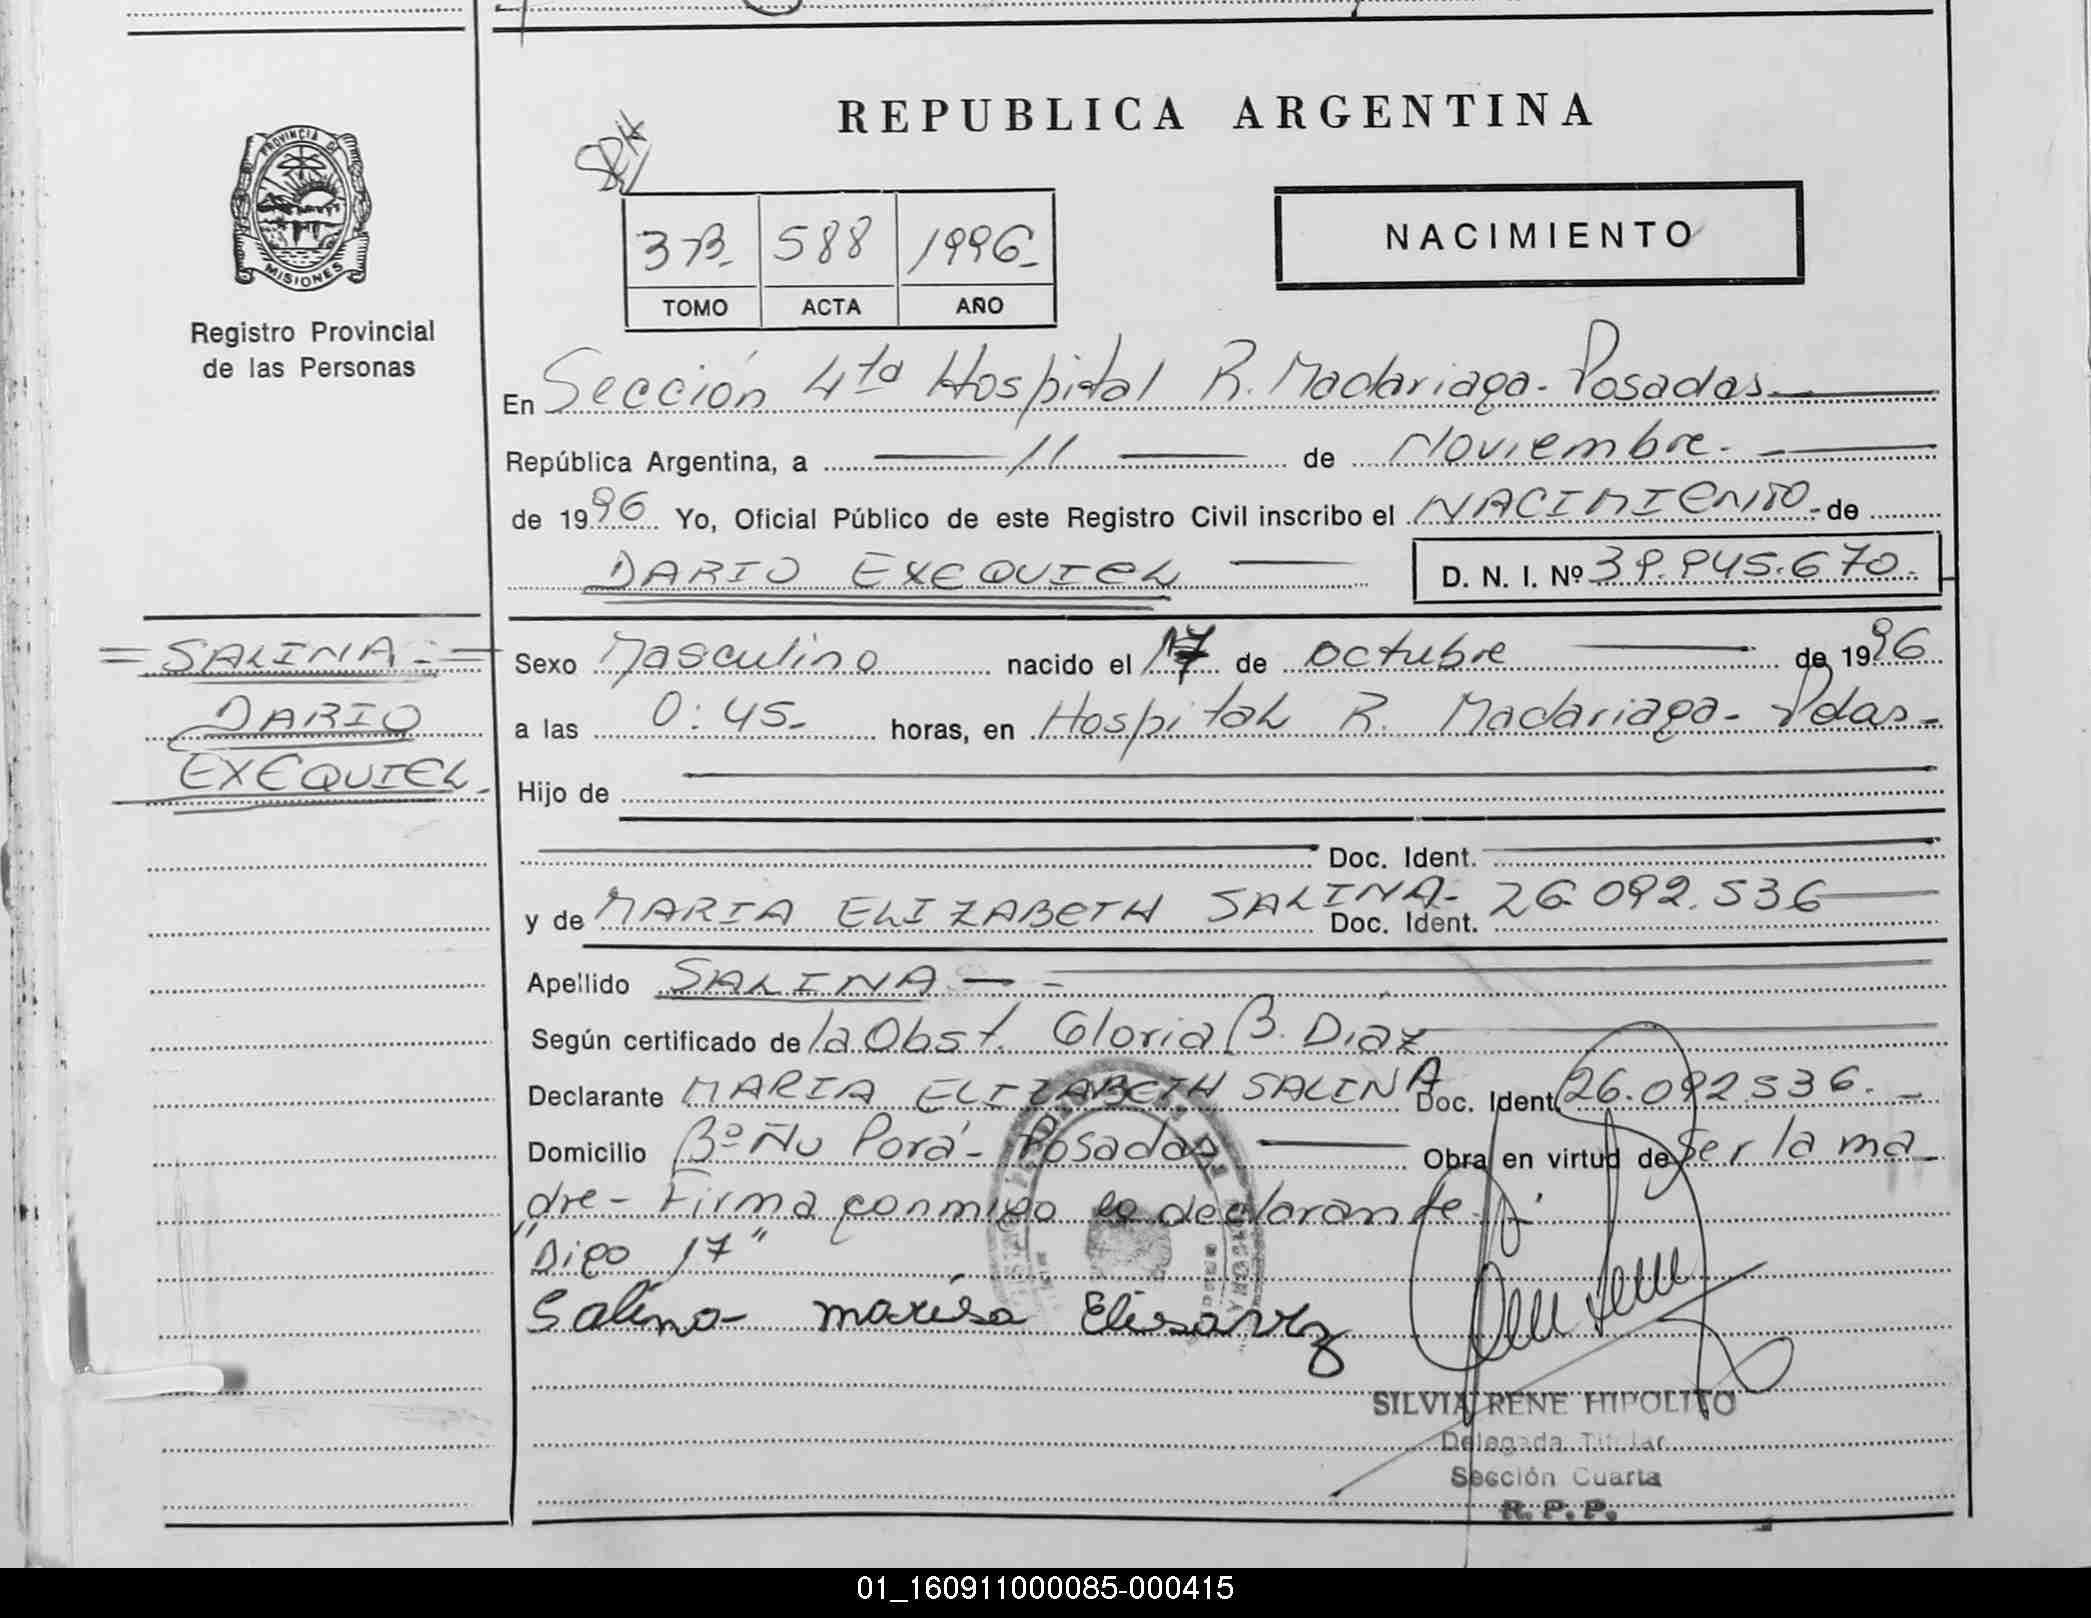 REPUBLICA ARGENTINA
PROVINCIA DE
MISIONES
Registro Provincial
de las Personas
SRH
3B. 588 1996.
TOMO ACTA AÑO
NACIMIENTO
En Sección 4ta Hospital R. Madariaga - Posadas
República Argentina, a 11 de Noviembre.
de 1996 Yo, Oficial Público de este Registro Civil inscribo el NACIMIENTO - de
DARIO EXEQUIEL D. N. I. Nº 39.945.670.
= SALINA =
DARIO
EXEQUIEL.
Sexo Masculino nacido el 17 de octubre de 1996
a las 0:45. horas, en Hospital R. Madariaga - Pdas.
Hijo de
Doc. Ident.
y de MARIA ELIZABETH SALINA - Doc. Ident. 26.092.536
Apellido SALINA
Según certificado de la Obst. Gloria B. Diaz
Declarante MARIA ELIZABETH SALINA Doc. Ident. 26.092.536.
Domicilio Bº Ñu Porá - Posadas Obra en virtud de ser la ma
dre - Firma conmigo la declarante.
"Digo 17"
Salina marisa Elisavez
SILVIA RENE HIPOLITO
Delegada Titular
Sección Cuarta
R. P. P.
01_160911000085-000415